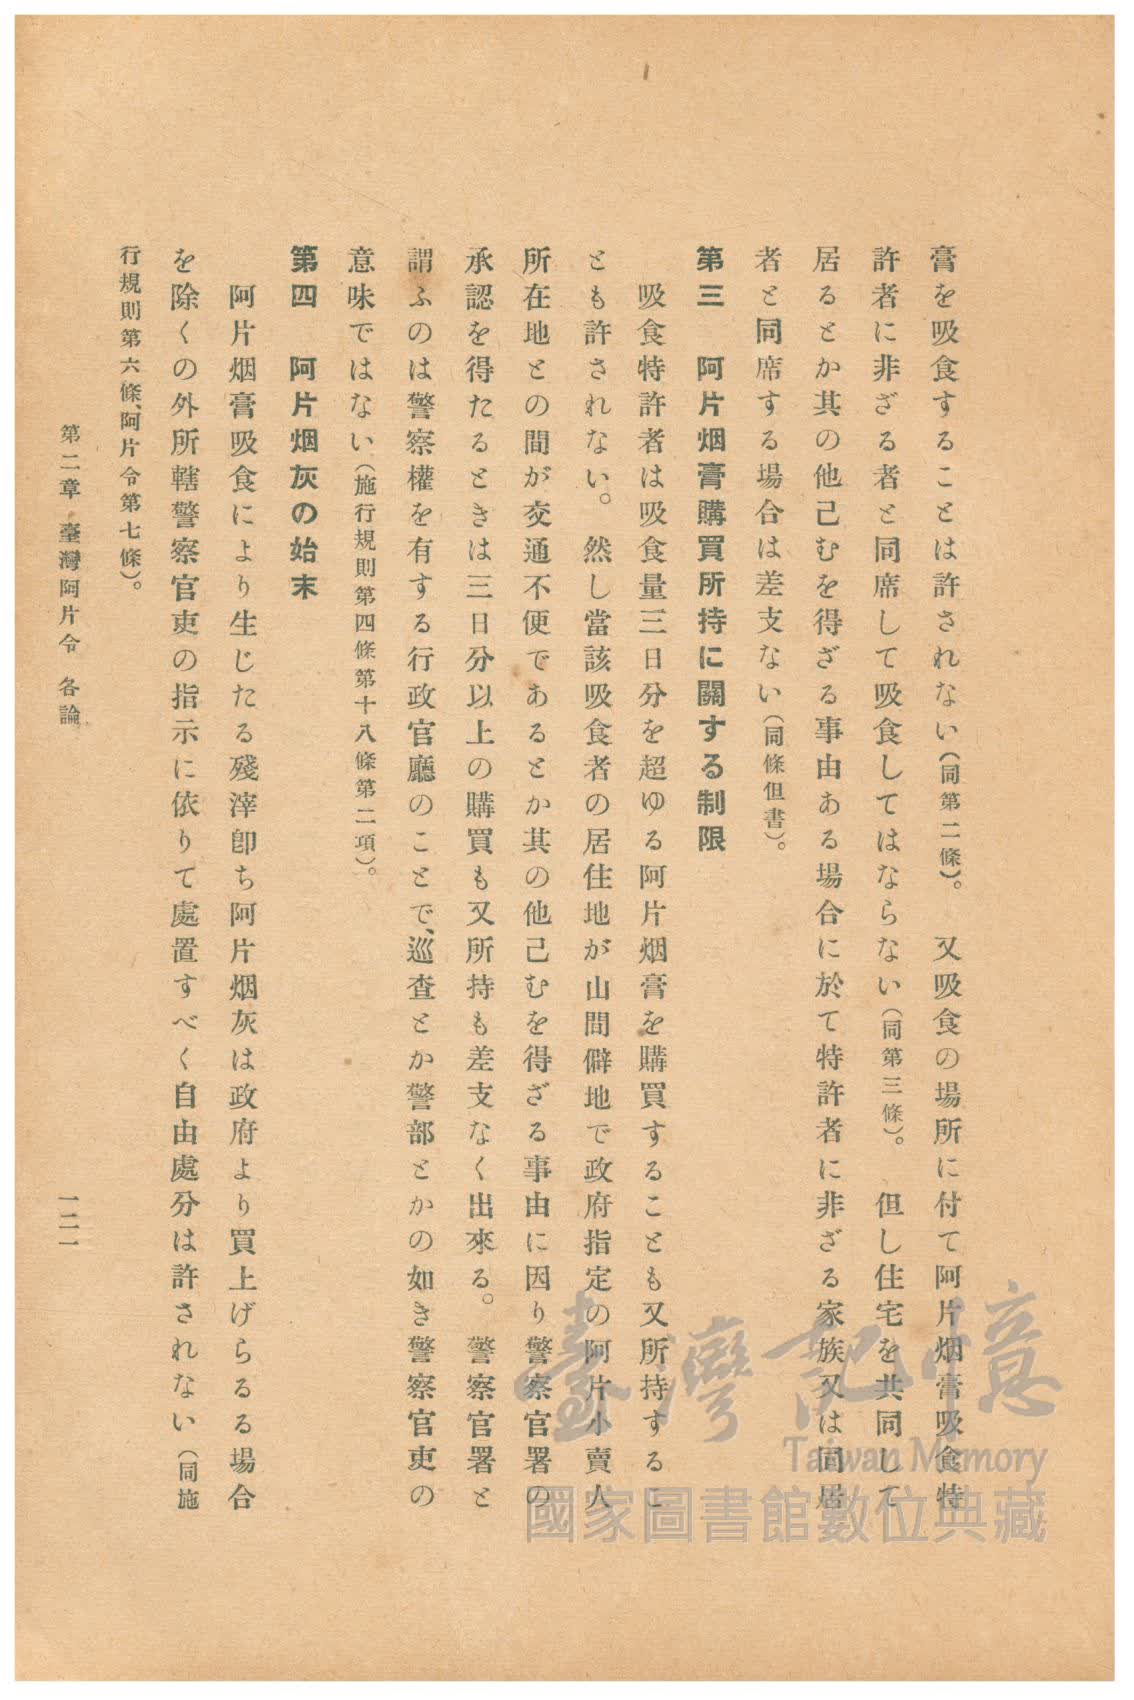 膏を吸食することは許されない(同第二條)。　又吸食の場所に付て阿片烟膏吸食特
許者に非ざる者と同席して吸食してはならない(同第三條)。　但し住宅を共同して
居るとか其の他已むを得ざる事由ある場合に於て特許者に非ざる家族又は同居
者と同席する場合は差支ない(同條但書)。
第三　阿片烟膏購買所持に關する制限
　吸食特許者は吸食量三日分を超ゆる阿片烟膏を購買することも又所持するこ
とも許されない。　然し當該吸食者の居住地が山間僻地で政府指定の阿片小賣人
所在地との間が交通不便であるとか其の他已むを得ざる事由に因り警察官署の
承認を得たるときは三日分以上の購買も又所持も差支なく出來る。　警察官署と
謂ふのは警察權を有する行政官廳のことで、巡査とか警部とかの如き警察官吏の
意味ではない(施行規則第四條第十八條第二項)。
第四　阿片烟灰の始末
　阿片烟膏吸食により生じたる殘滓卽ち阿片烟灰は政府より買上げらるる場合
を除くの外所轄警察官吏の指示に依りて處置すべく自由處分は許されない(同施
行規則第六條、阿片令第七條)。
第二章　臺灣阿片令　各論
一二一
臺灣記憶
Taiwan Memory
國家圖書館數位典藏